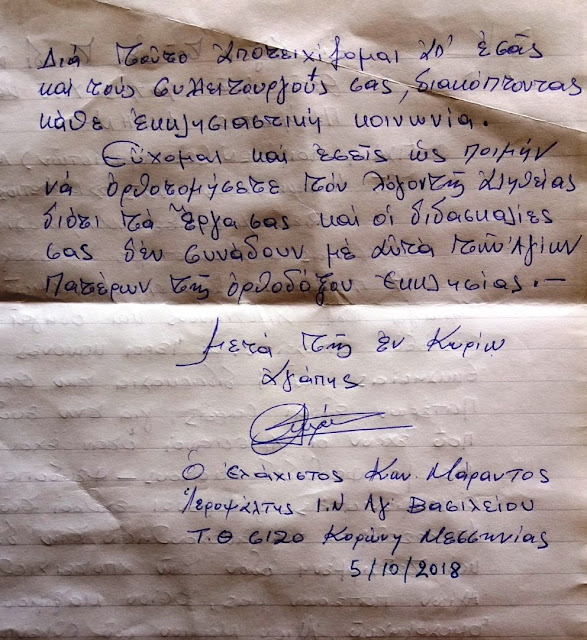 Διά τοῦτο ἀποτειχίζομαι ἀπ' ἐσᾶς
καί τούς συλλειτουργούς σας, διακόπτοντας
κάθε ἐκκλησιαστική κοινωνία.
Εὔχομαι καί ἐσεῖς ὡς ποιμήν
νά ὀρθοτομήσετε τόν λόγον τῆς ἀληθείας
διότι τά ἔργα σας καί οἱ διδασκαλίες
σας δέν συνάδουν μέ αὐτά τῶν Ἁγίων
Πατέρων τῆς ὀρθοδόξου Ἐκκλησίας.—
Μετά τῆς ἐν Κυρίῳ
ἀγάπης
Ὁ ἐλάχιστος Κων. Μάραντος
Ἱεροψάλτης Ι.Ν Ἁγ Βασιλείου
Τ.Θ 6120 Κορώνη Μεσσηνίας
5/10/2018